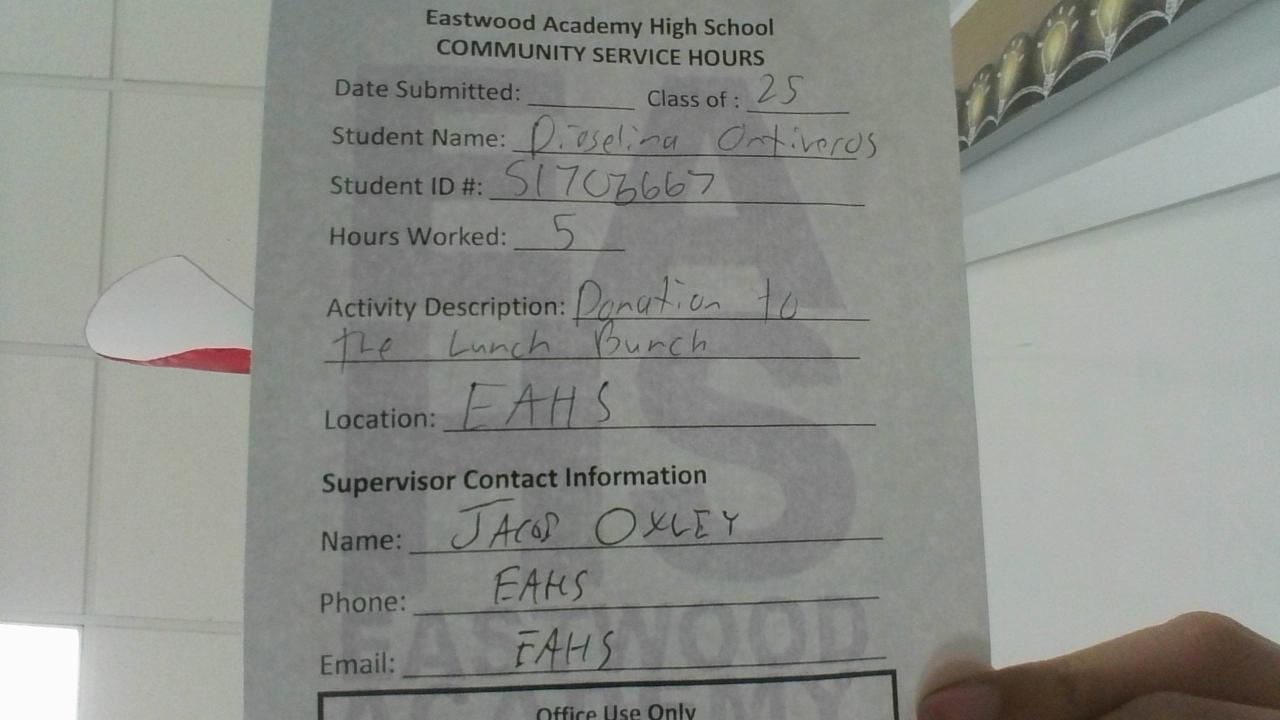 Eastwood Academy High School
COMMUNITY SERVICE HOURS
Date Submitted: Class of : 25
Student Name: Dioselina Ontiveros
Student ID #: S1703667
Hours Worked: 5
Activity Description: Donation to
the Lunch Bunch
Location: EAHS
Supervisor Contact Information
Name: JACOB OXLEY
Phone: EAHS
Email: EAHS
Office Use Only
EAHS
EASTWOOD
ACADEMY